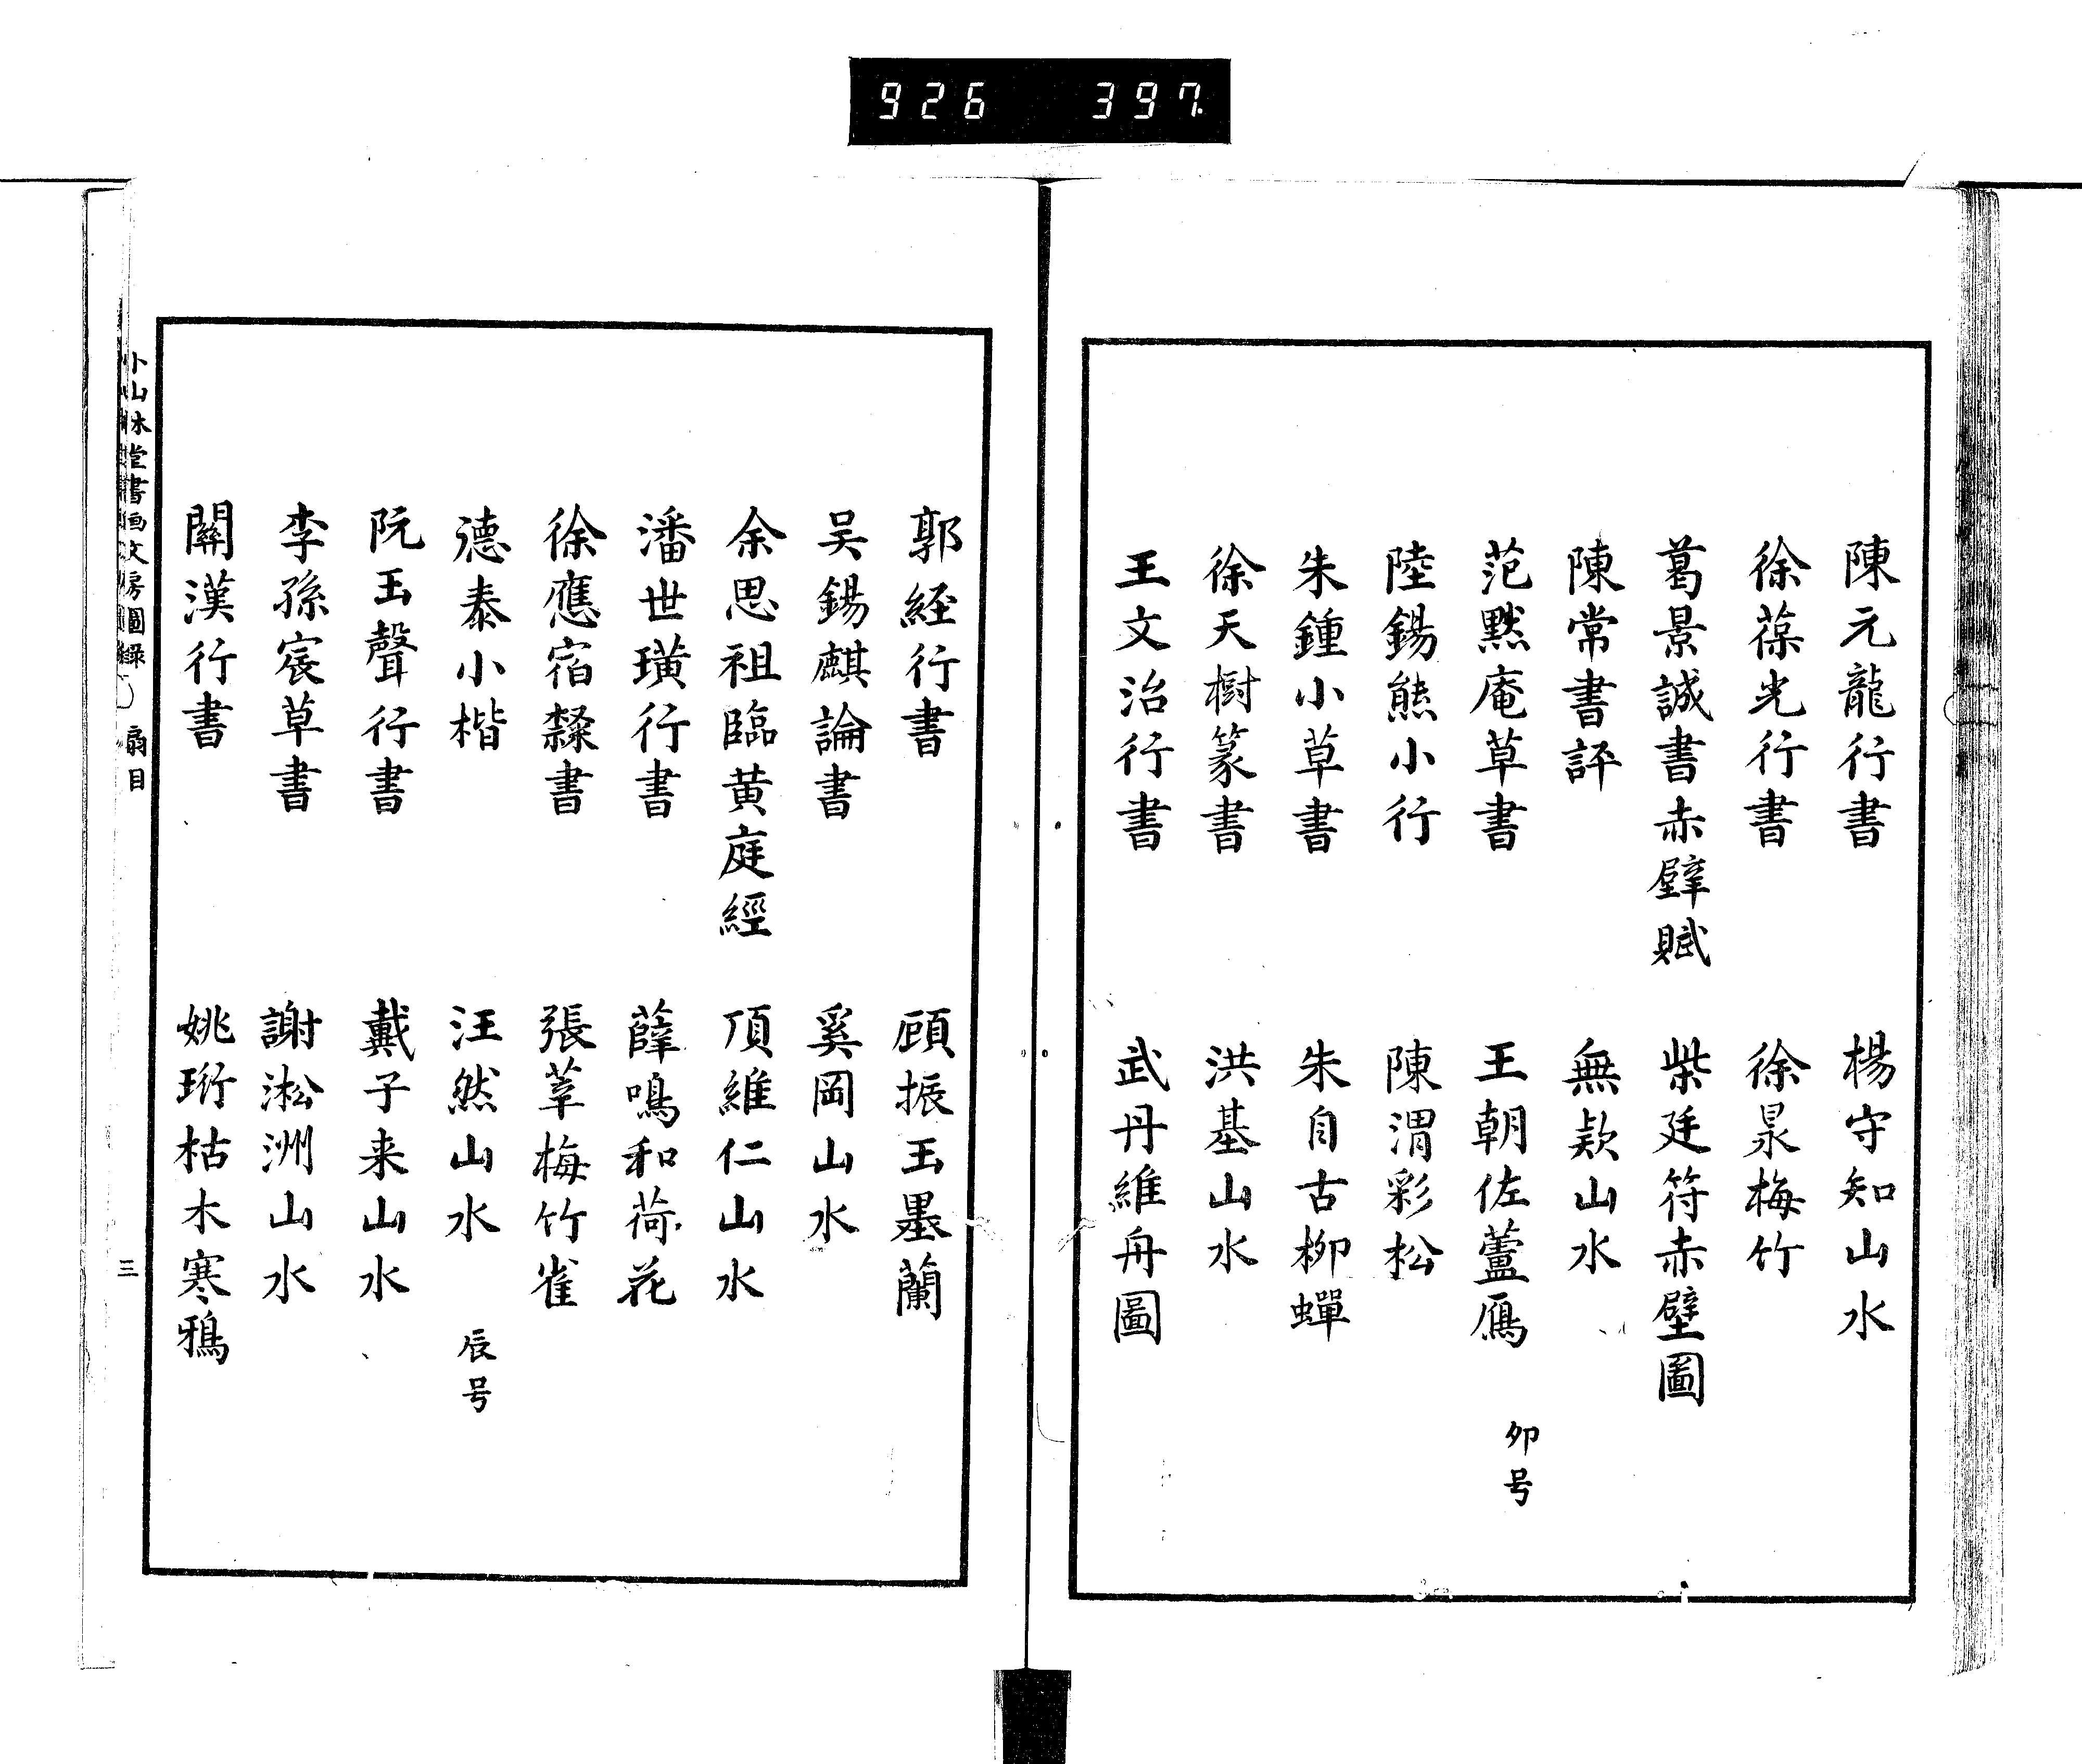 926 397
陳元龍行書 楊守知山水
徐葆光行書 徐杲梅竹
葛景誠書赤壁賦 柴廷符赤壁圖
陳常書評 無款山水
范黙庵草書 王朝佐蘆鴈 夘号
陸錫熊小行 陳渭彩松
朱鍾小草書 朱自古柳蟬
徐天樹篆書 洪基山水
王文治行書 武丹維舟圖
郭経行書 顧振玉墨蘭
吴錫麒論書 奚岡山水
余思祖臨黄庭經 項維仁山水
潘世璜行書 薛鳴和荷花
徐應宿隸書 張莘梅竹雀
德泰小楷 汪然山水 辰号
阮玉聲行書 戴子来山水
李孫宸草書 謝淞洲山水
關漢行書 姚珩枯木寒鴉
小山林堂書画文房圖録 扇目 三